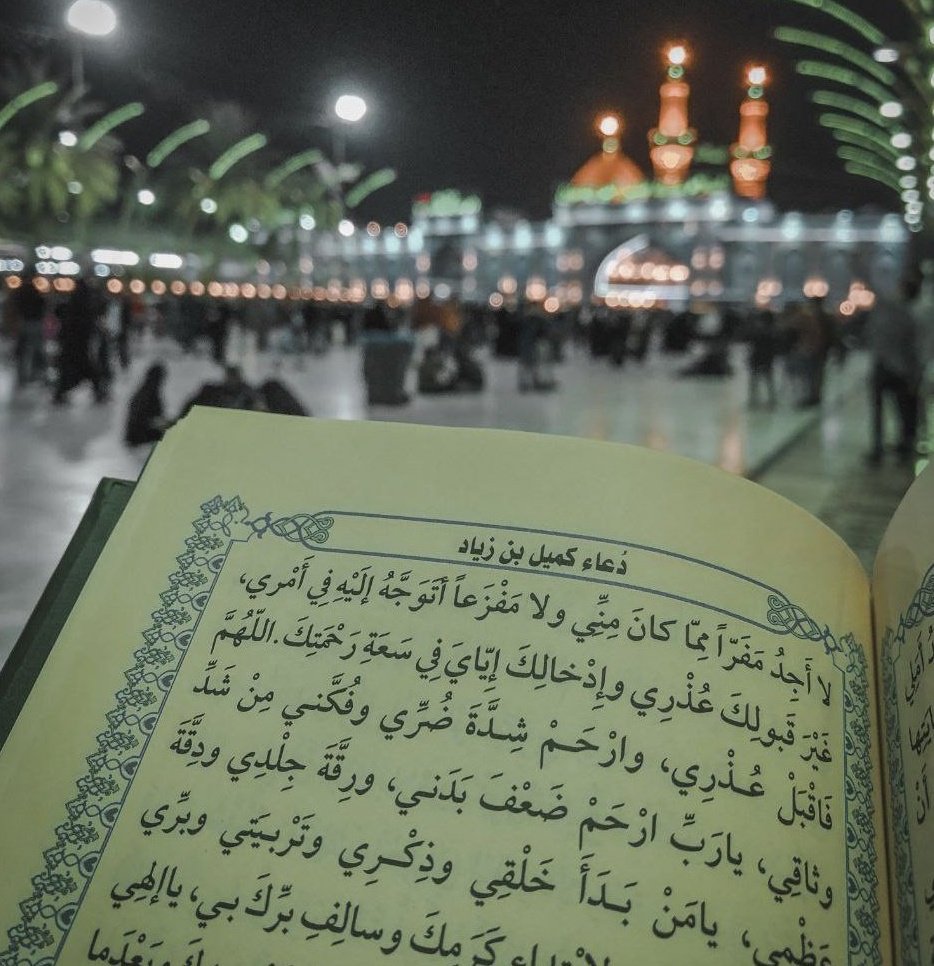 دُعاء كميل بن زياد
لا أَجِدُ مَفَرّاً مِمّا كانَ مِنِّي ولا مَفْزَعاً أَتَوَجَّهُ إلَيْهِ فِي أَمْري،
غَيْرَ قَبولِكَ عُذْرِي وإدْخالِكَ إيّايَ فِي سَعَةِ رَحْمَتِكَ. اللّهُمَّ
فَاقْبَلْ عُذْرِي، وارْحَمْ شِدَّةَ ضُرِّي وفُكَّنـي مِنْ شَدِّ
وثاقِي، يارَبِّ ارْحَمْ ضَعْفَ بَدَنـي، ورِقَّةَ جِلْدِي ودِقَّةَ
عَظْمِي، يامَنْ بَدَأَ خَلْقِي وذِكْرِي وتَرْبيَتي وبِرِّي
كَرَمِكَ وسالِفِ بِرِّكَ بـي، ياإلهِي
وبَعْدَما